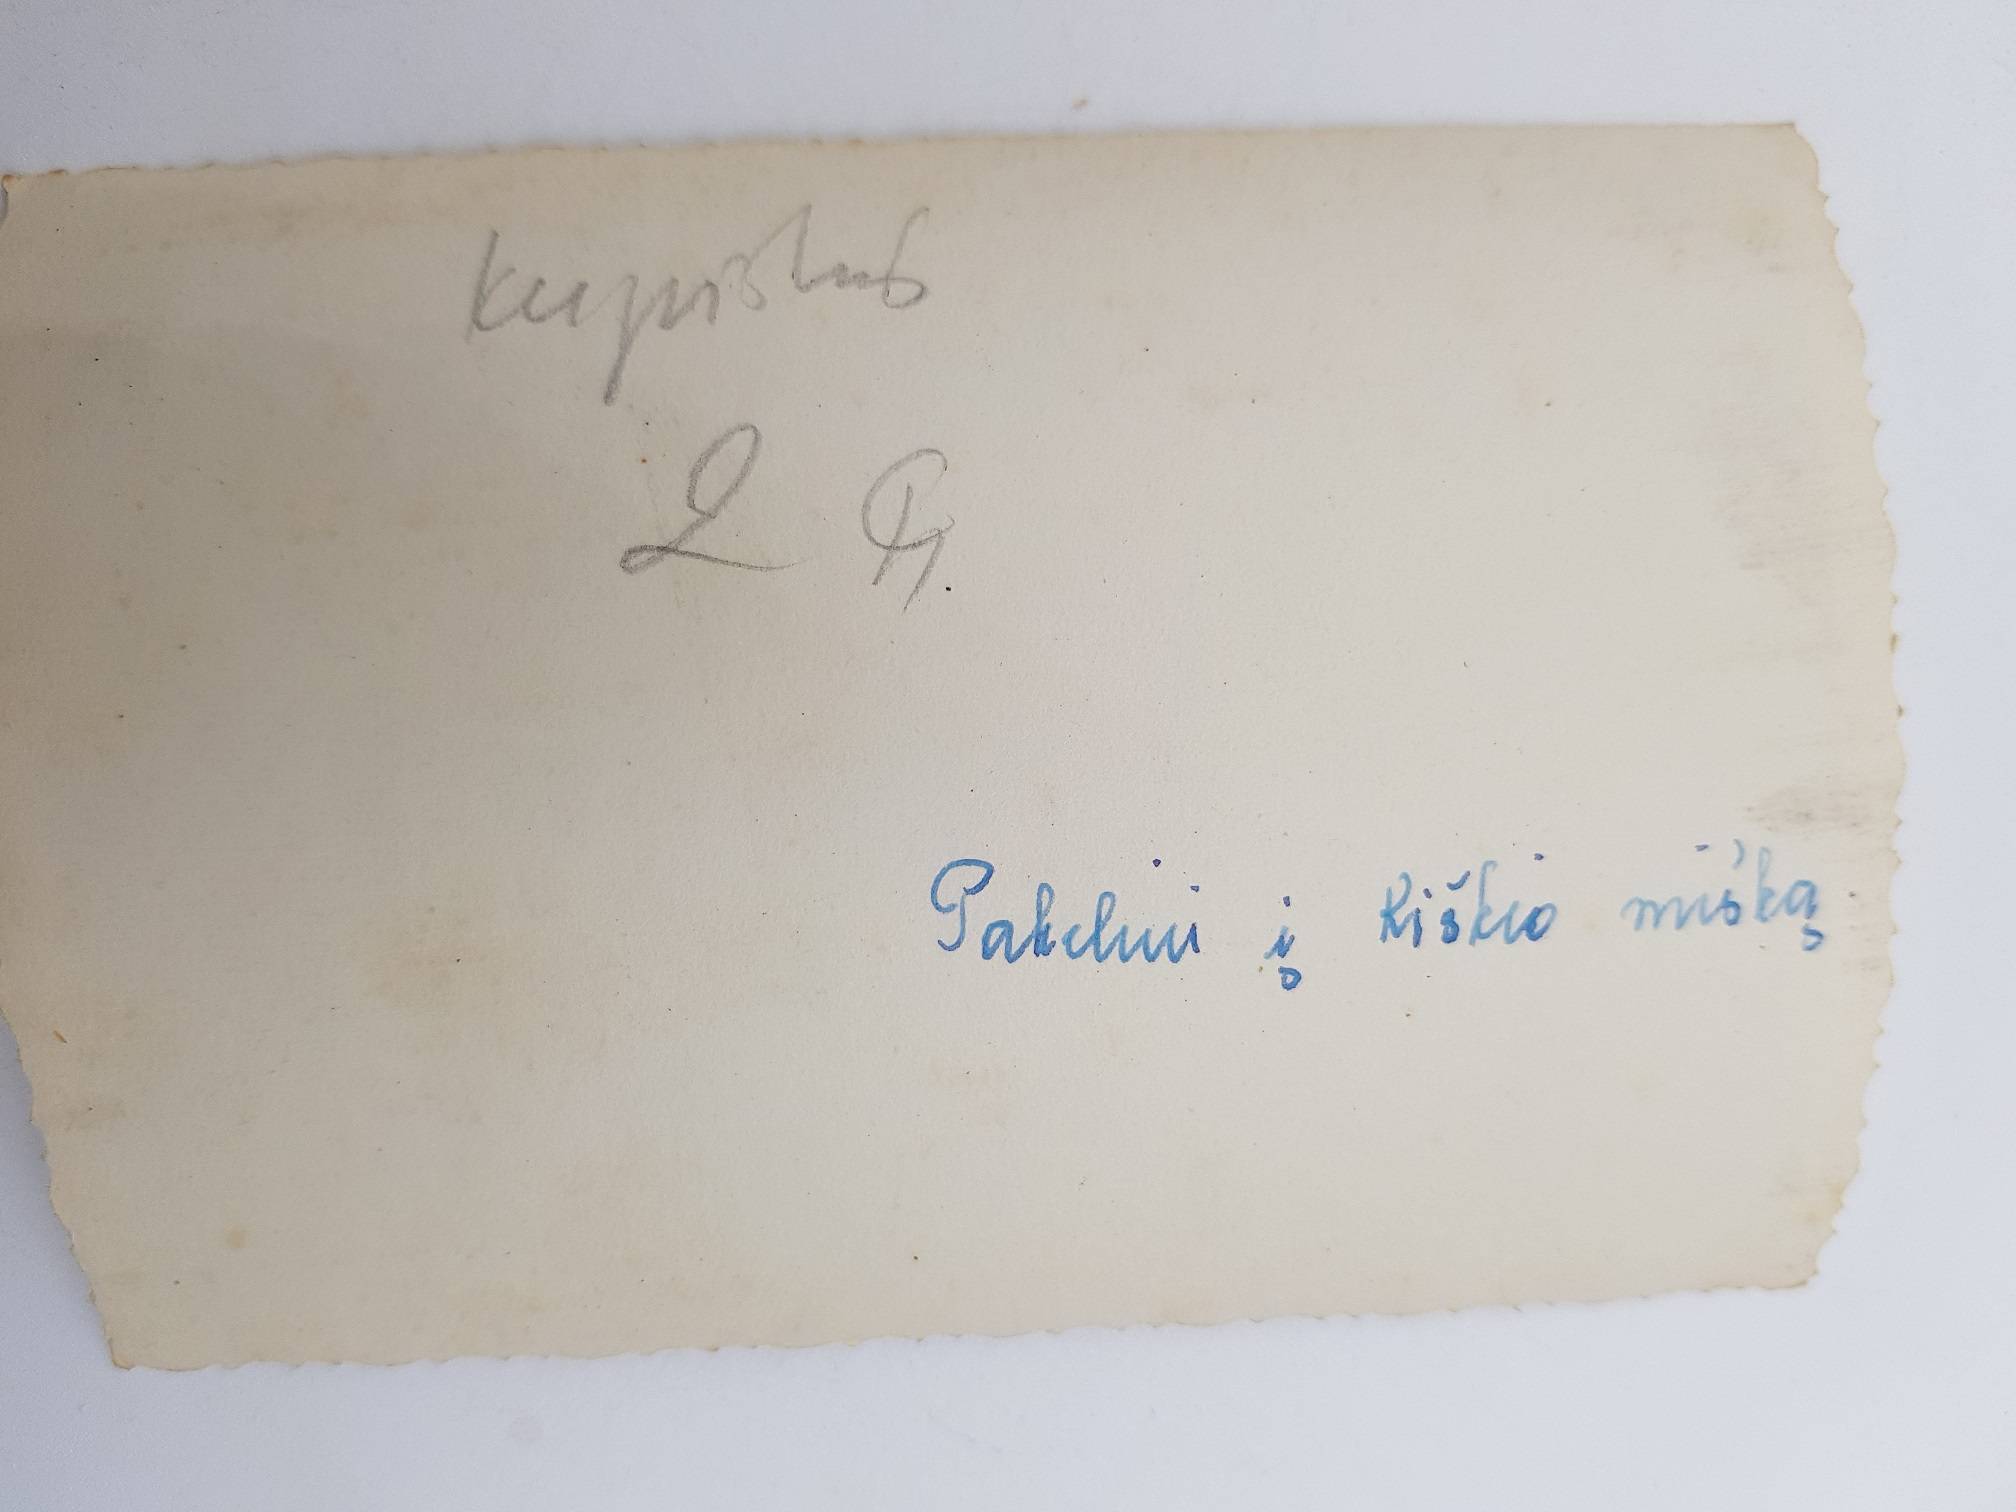 Kupiškus
2
Pakeliui į Kiškio mišką